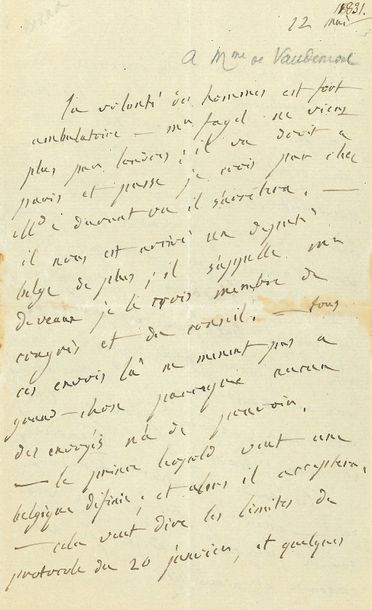 1831.
12 mai
A Mme de Vaudemont
la volonté des hommes est fort
ambulatoire — mr fagel ne viens
plus par londres; il va droit a
paris et passe je crois par chez
où il s'arretera. —
il nous est arrivé un deputé
belge de plus; il s'appelle mr
deveaux je le crois membre du
congrès et du conseil. — tous
ces envois là ne menent pas a
grand-chose parceque aucun
des envoyés n'a de pouvoir.
— le prince leopold veut une
belgique définie; et alors il acceptera.
— cela veut dire les limites du
protocole du 20 janvier, et quelques